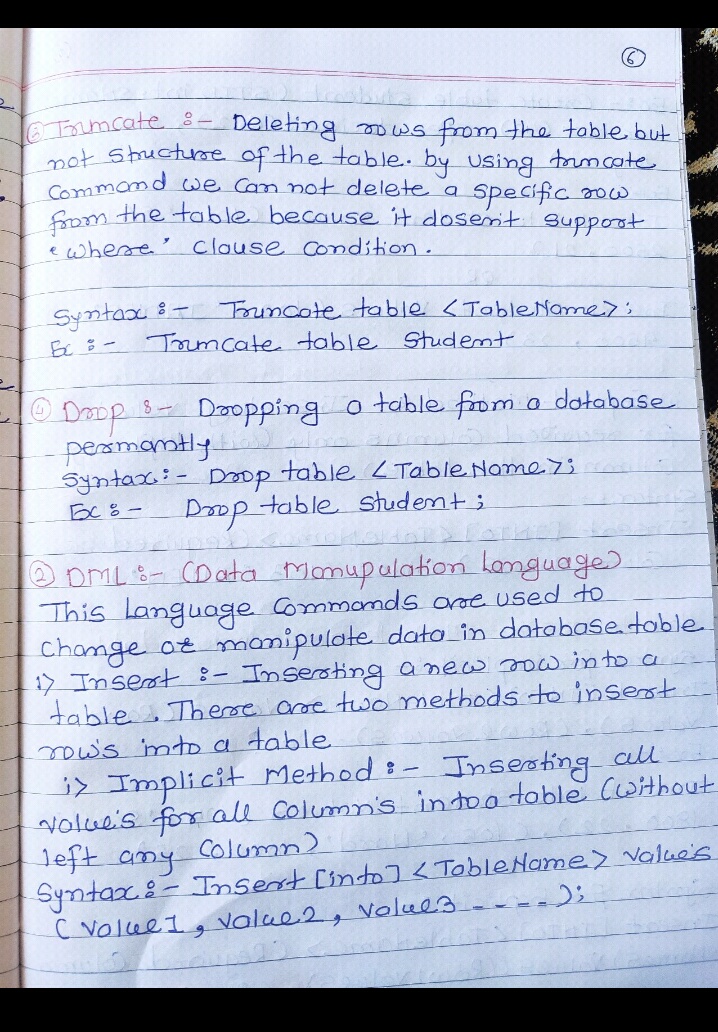 6
③ Truncate :- Deleting rows from the table but
not structure of the table. by using truncate
Command we can not delete a specific row
from the table because it dosen't support
'where' clause condition.
Syntax :- Truncate table <TableName>;
Ex :- Truncate table Student
④ Drop :- Dropping a table from a database
permantly
Syntax :- Drop table <TableName>;
Ex :- Drop table student;
② DML :- (Data Manupulation Language)
This Language Commands are used to
change or manipulate data in database table
1) Insert :- Inserting a new row into a
table. There are two methods to insert
row's into a table
i) Implicit Method :- Inserting all
value's for all Column's into a table (without
left any Column)
Syntax :- Insert [into] <TableName> value's
(value1, value2, value3 ----);